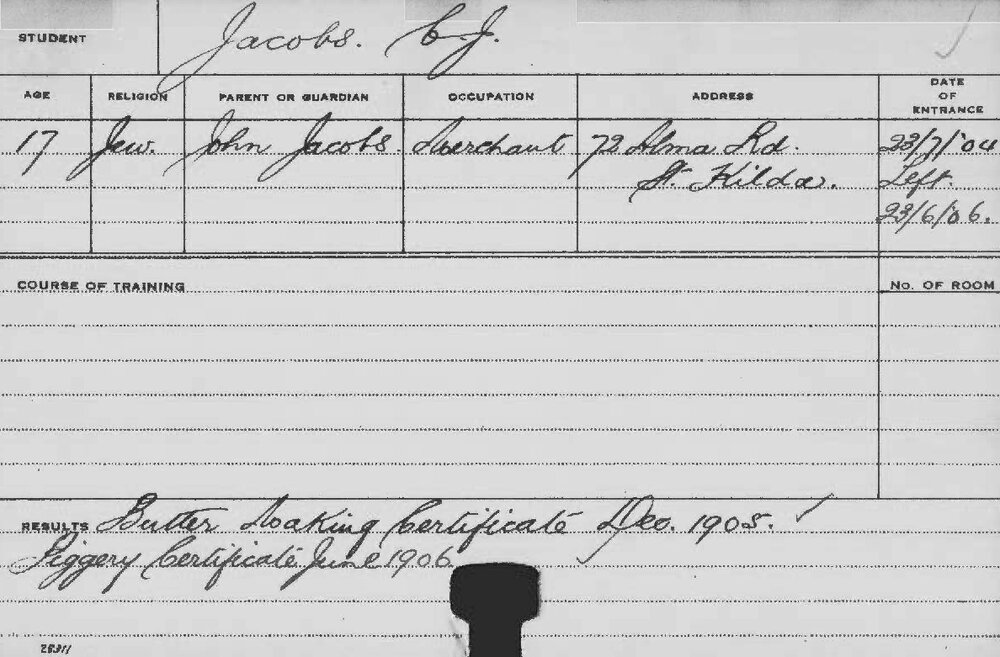 STUDENT Jacobs. C. J.
AGE RELIGION PARENT OR GUARDIAN OCCUPATION ADDRESS DATE OF ENTRANCE
17 Jew. John Jacobs. Merchant 72 Alma Rd. 23/7/'04
St. Kilda. Left.
23/6/'06.
COURSE OF TRAINING No. OF ROOM
RESULTS Butter Making Certificate Dec. 1905.
Piggery Certificate June 1906